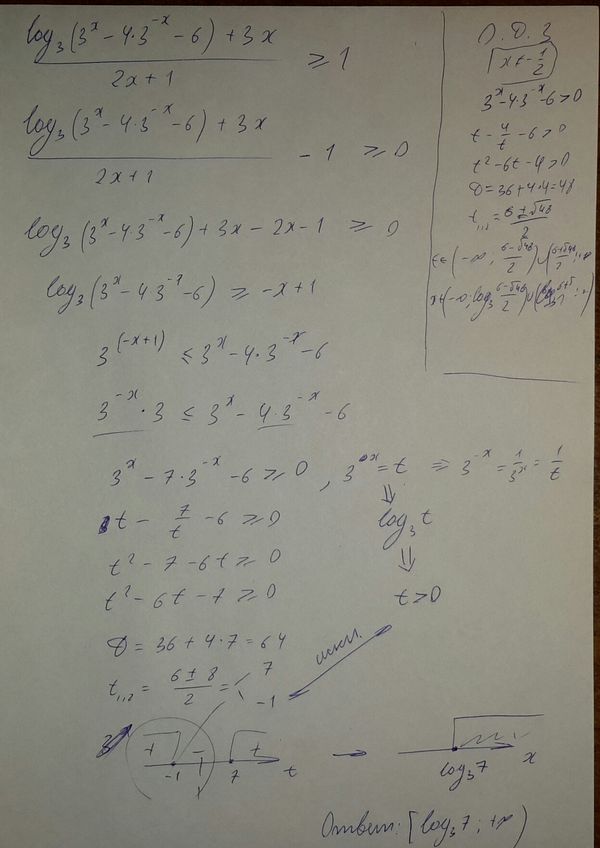 (log₃(3ˣ - 4·3⁻ˣ - 6) + 3x)/(2x+1) ⩾ 1
(log₃(3ˣ - 4·3⁻ˣ - 6) + 3x)/(2x+1) - 1 ⩾ 0
log₃(3ˣ - 4·3⁻ˣ - 6) + 3x - 2x - 1 ⩾ 0
log₃(3ˣ - 4·3⁻ˣ - 6) ⩾ -x+1
3^(-x+1) ⩽ 3ˣ - 4·3⁻ˣ - 6
3⁻ˣ·3 ⩽ 3ˣ - 4·3⁻ˣ - 6
3ˣ - 7·3⁻ˣ - 6 ⩾ 0, 3ˣ = t ⇒ 3⁻ˣ = 1/3ˣ = 1/t
t - 7/t - 6 ⩾ 0 ⇓ log₃t
t² - 7 - 6t ⩾ 0 ⇓
t² - 6t - 7 ⩾ 0 t > 0
D = 36 + 4·7 = 64
t₁,₂ = (6 ± 8)/2 = 7
-1 искл.
+ - +
-1 7 t → log₃7 x
Ответ: [log₃7; +∞)
О.Д.З
x ≠ -1/2
3ˣ - 4·3⁻ˣ - 6 > 0
t - 4/t - 6 > 0
t² - 6t - 4 > 0
D = 36 + 4·4 = 48
t₁,₂ = (6 ± √48)/2
t ∈ (-∞; (6-√48)/2) ∪ ((6+√48)/2; +∞)
x ∈ (-∞; log₃ (6-√48)/2) ∪ (